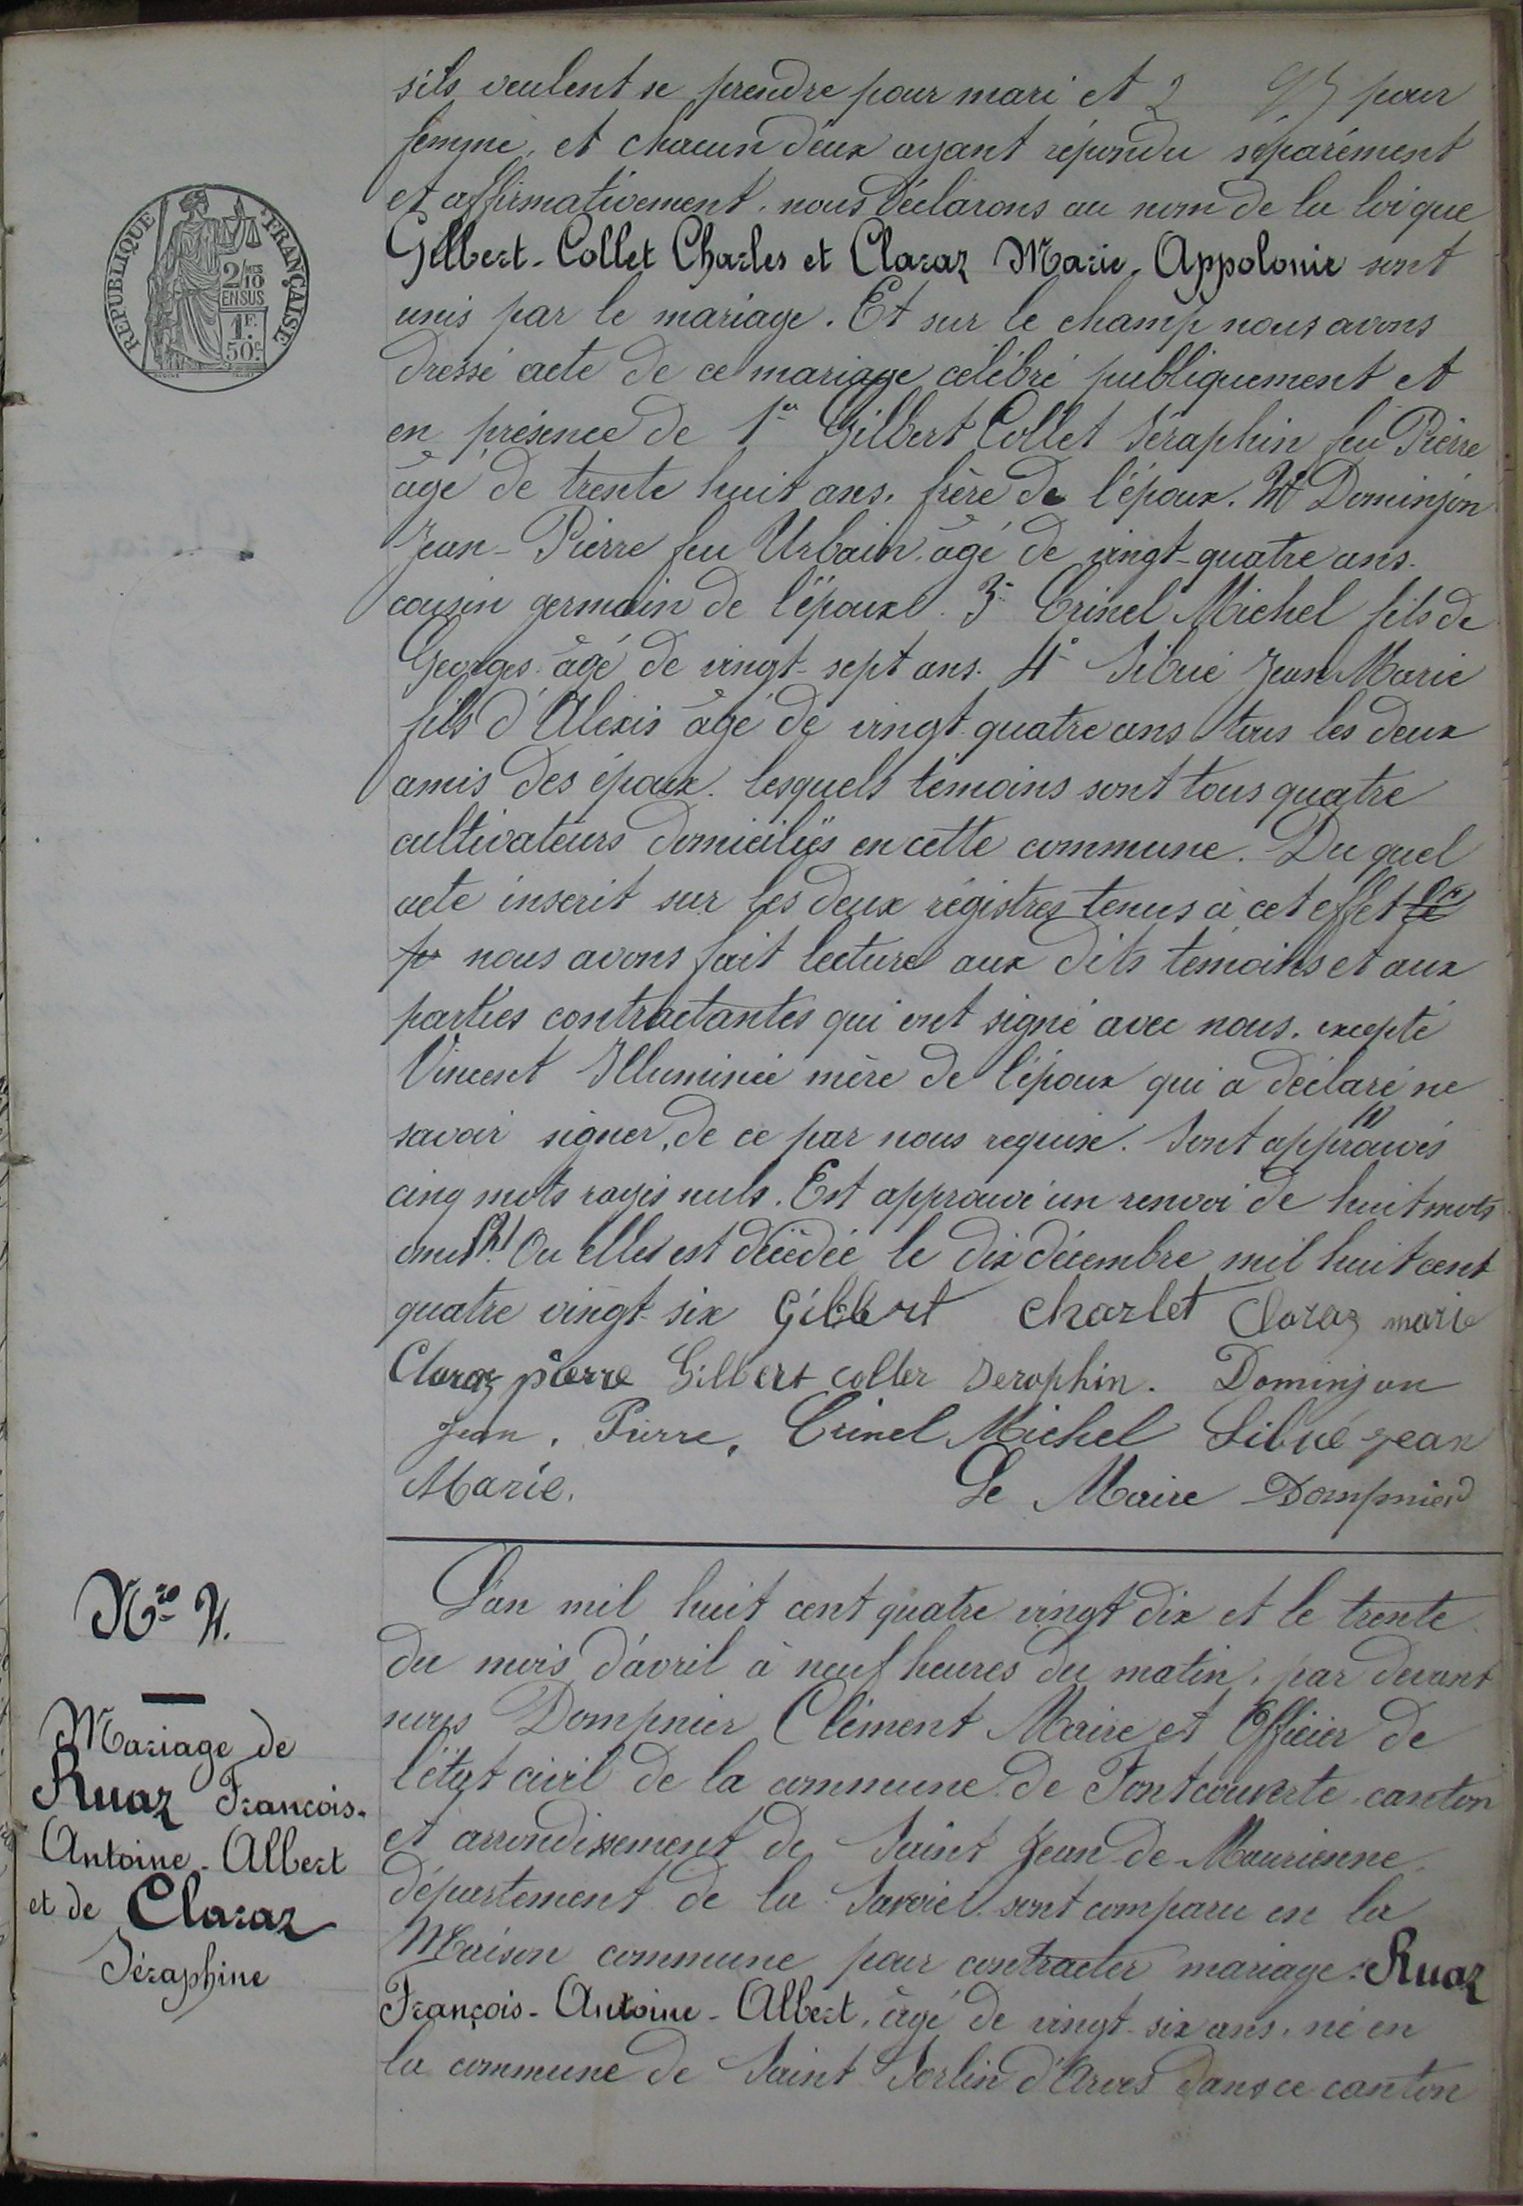 s'ils veulent se prendre pour mari et pour
femme, et chacun d'eux ayant répondu séparément
et affirmativement. nous déclarons au nom de la loi que
Gilbert-Collet Charles et Claraz Marie-Appolonie sont
unis par le mariage. Et sur le champ nous avons
dressé acte de ce mariage célébré publiquement et
en présence de 1° Gilbert Collet Séraphin feu Pierre
âgé de trente huit ans. frère de l'époux. Dominjon
Jean-Pierre feu Urbain. âgé de vingt-quatre ans.
cousin germain de l'époux. 3° Crinel Michel fils de
Georges âgé de vingt-sept ans. 4° Sibué Jean Marie
fils d'Alexis âgé de vingt quatre ans tous les deux
amis des époux. lesquels témoins sont tous quatre
cultivateurs domiciliés en cette commune. Du quel
acte inscrit sur les deux régistres tenus à cet effet
nous avons fait lecture aux dits témoins et aux
parties contractantes qui ont signé avec nous. excepté
Vincent Illuminée mère de l'époux qui a déclaré ne
savoir signer, de ce par nous requise. Sont approuvés
cinq mots rayés nuls. Est approuvé un renvoi de huit mots
omis. Ou elle est décédée le dix décembre mil huit cent
quatre vingt-six Gilbert Charlet Claraz marie
Claraz pierre Gilbert coller Seraphin. Dominjon
Jean. Pierre. Crinel Michel Sibué jean
Marie. Le Maire Dompnier
REPUBLIQUE FRANÇAISE
2/10MES
EN SUS
1F.
50C.
Nro 4.
Mariage de
Ruaz François-
Antoine-Albert
et de Claraz
Séraphine
L'an mil huit cent quatre vingt dix et le trente
du mois d'avril à neuf heures du matin, par devant
nous Dompnier Clément Maire et Officier de
l'état civil de la commune de Fontcouverte. canton
et arrondissement de Saint Jean de Maurienne.
département de la Savoie. sont comparu en la
Maison commune pour contracter mariage: Ruaz
François-Antoine-Albert, âgé de vingt-six ans. né en
la commune de Saint Sorlin d'Arves dans ce canton